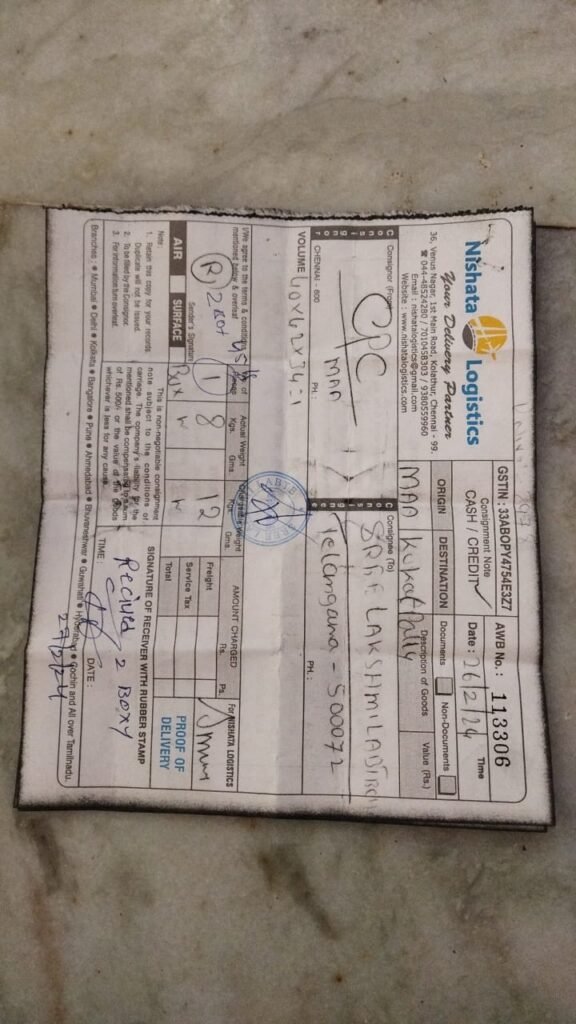 Nishata Logistics
Your Delivery Partner
36, Venus Nagar, 1st Main Road, Kolathur, Chennai - 99.
044-48524280 / 7010458303 / 9380559960
Email : nishatalogistics@gmail.com
Website : www.nishatalogistics.com
GSTIN : 33ABOPY4754E3Z7
Consignment Note
CASH / CREDIT
AWB No. : 113306
Date : 26/2/24
Time
ORIGIN
DESTINATION
MAA
Kukatpally
Documents
Non-Documents
Description of Goods
Value (Rs.)
Consignor
Consignor (From)
CPC
MAA
CHENNAI - 600
PH. :
Consignee
Consignee (To)
SREE LAKSHMI
Telangana - 500072
PH. :
VOLUME
I/We agree to the terms & conditions
mentioned below & overleaf
Sender's Signature
AIR
SURFACE
Actual Weight
Kgs.
Gms
1
8
Box
Chargeable Weight
Kgs.
Gms.
12
AMOUNT CHARGED
Rs.
Ps.
Freight
Service Tax
Total
For NISHATA LOGISTICS
PROOF OF
DELIVERY
Note:
1. Retain this copy for your records
Duplicate will not be issued.
2. To be filled by the Consignor.
3. For information turn overleaf.
This is non-negotiable consignment
note subject to the conditions of
carriage. The company's liability for the
mentioned shall be compensated
of Rs. 500/- or the value of the goods
whichever is less for any cause.
SIGNATURE OF RECEIVER WITH RUBBER STAMP
Recived 2 Boxy
TIME :
DATE :
27/2/24
Branches : ● Mumbai ● Delhi ● Kolkata ● Bangalore ● Pune ● Ahmedabad ● Bhuvaneshwar ● Guwahati ● Hyderabad ● Cochin and All over Tamilnadu.